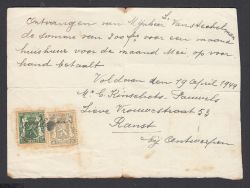 Ontvangen van Mijnheer Van Stechelman
de somme van 300 fr voor een maand
huishuur voor de maand Mei op voor
hand betaalt
Voldaan den 19 April 1944
Me C. Kinschots. Pauwels
Lieve Vrouwestraat 53
Ranst
bij Antwerpen